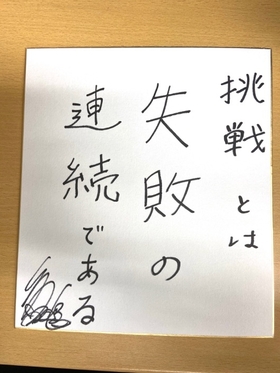 挑戦とは
失敗の
連続である